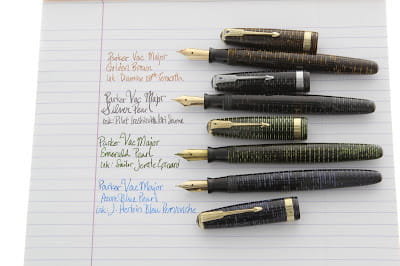 Parker Vac Major
Golden Brown
Ink: Diamine
Parker Vac Major
Silver Pearl
Ink: Pilot Iroshizuku
Parker Vac Major
Emerald Pearl
Ink: Sailor Jentle
Parker Vac Major
Azure Blue Pearl
Ink: J. Herbin Bleu Pervenche